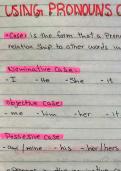 USING PRONOUNS C
•Case: is the form that a Pron
relation ship to other words in
Nominative Case:
- I - He - She - it
objective Case:
- me - him - her - it
Possessive Case:
- my / mine - his - her / hers